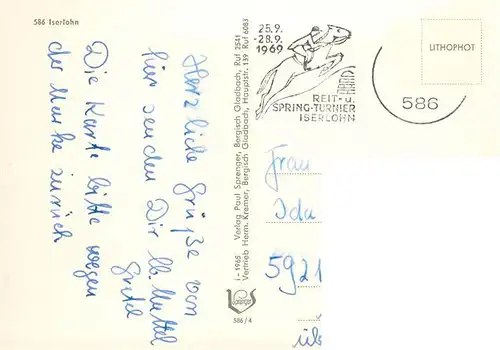 586 Iserlohn
Herzliche Grüße von
hier senden Dir lb. Muttel
Die Karte bitte wegen
der Marke zurück
i - 1965 Verlag Paul Sprenger, Bergisch Gladbach, Ruf 2541
Vertrieb Herm. Kremer, Bergisch Gladbach, Hauptstr. 139 Ruf 6083
586/4
25.9.
-28.9.
1969
REIT- u.
SPRING-TURNIER
ISERLOHN
586
LITHOPHOT
Frau
Ida
5921
üb